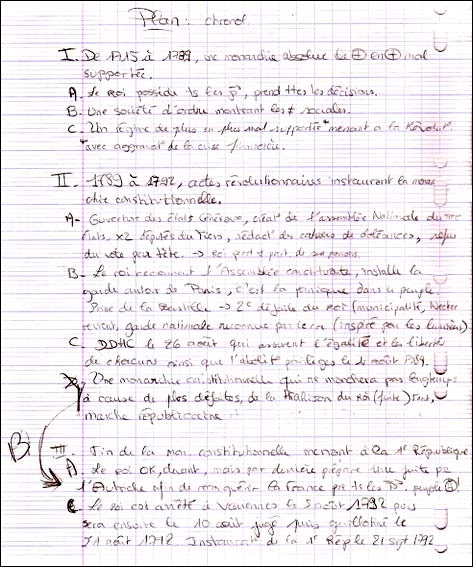 Plan : chronol.
I. De 1715 à 1789, une monarchie absolue de ⊕ en ⊕ mal
supportée.
A. Le Roi possède ts les p°, prend ttes les décisions.
B. Une société d'ordre montrant les ≠ sociales.
C. Un régime de plus en plus mal supporté* menant à la Révolut°
*avec aggravat° de la crise financière.
II. 1789 à 1792, actes révolutionnaires instaurant la monar
chie constitutionnelle.
A- Ouverture des États Généraux, créat° de l'assemblée Nationale du
États, x2 députés du Tiers, rédact° des cahiers de doléances, refus
du vote par tête. → Roi perd part. de ses pouvoirs.
B- Le roi reconnait l'Assemblée constituante, installe la
garde autour de Paris, c'est la panique dans le peuple.
Prise de la Bastille → 2e défaite du roi (municipalité, Necker
revient, garde nationale reconnue par le roi (inspiré par les lumières)
C. DDHC le 26 août qui assurent l'égalité et les libertés
de chacuns ainsi que l'abolit° privilèges le 4 août 1789.
Une monarchie constitutionnelle qui ne marchera pas longtemps
à cause de plrs défaites, de la trahison du Roi (fuite)
marche républicaine
B
III. Fin de la mon. constitutionnelle menant à la 1e République
A) Le roi OK, devant, mais par derrière prépare une fuite
l'Autriche afin de reconquérir la France
C Le roi est arrêté à Varennes le 5 août 1792 puis
sera ensuite le 10 août jugé puis guillotiné le
21 août 1792. Instaurat° de la 1e Rép le 21 sept 1792